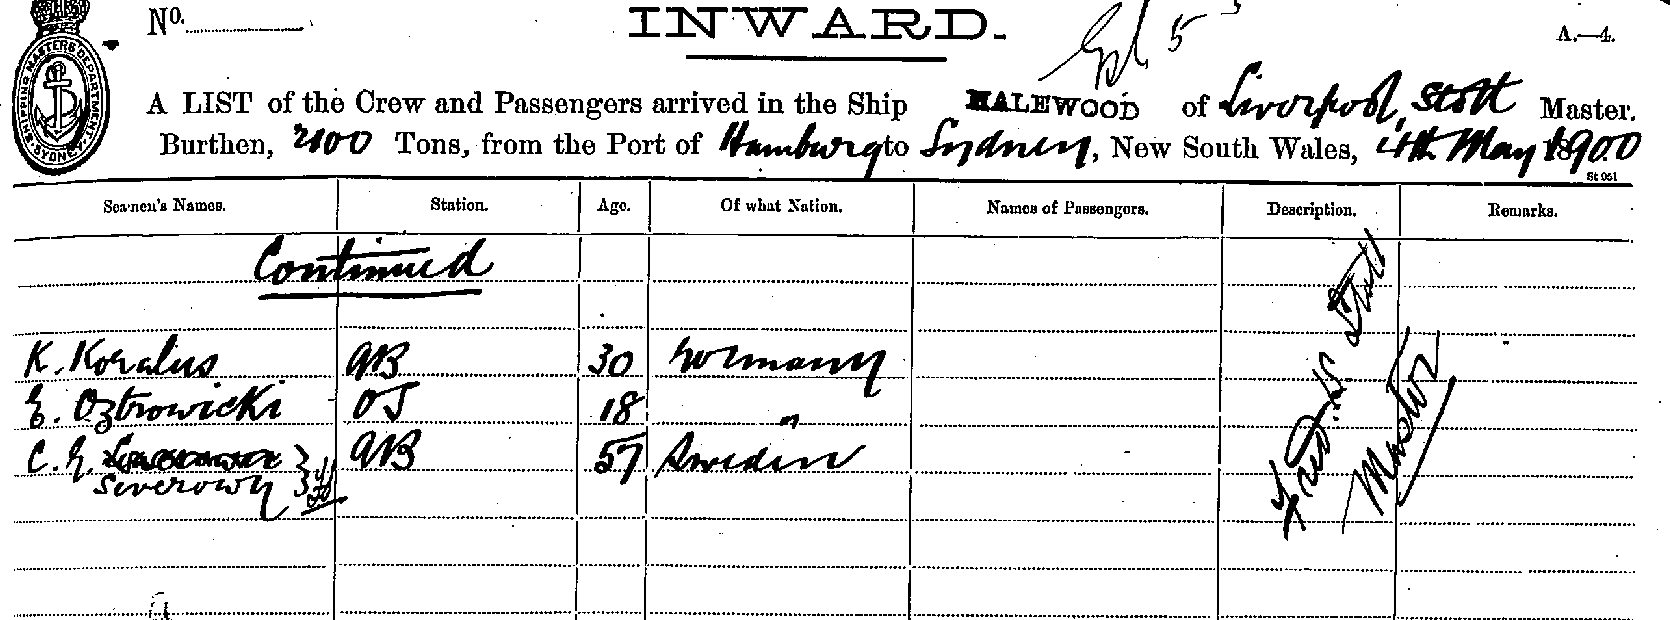 No.
INWARD.
5
A.—4.
SHIPPING MASTERS DEPARTMENT. SYDNEY.
A LIST of the Crew and Passengers arrived in the Ship HALEWOOD of Liverpool, Stott Master.
Burthen, 2100 Tons, from the Port of Hamburg to Sydney, New South Wales, 4th May 1900
St 051
Seamen's Names. Station. Age. Of what Nation. Names of Passengers. Description. Remarks.
Continued
K. Koralus AB 30 Germany
E. Oztrowicki OS 18 "
C. E. AB 57 Sweden
Severowy
Fred. H. Stott
Master